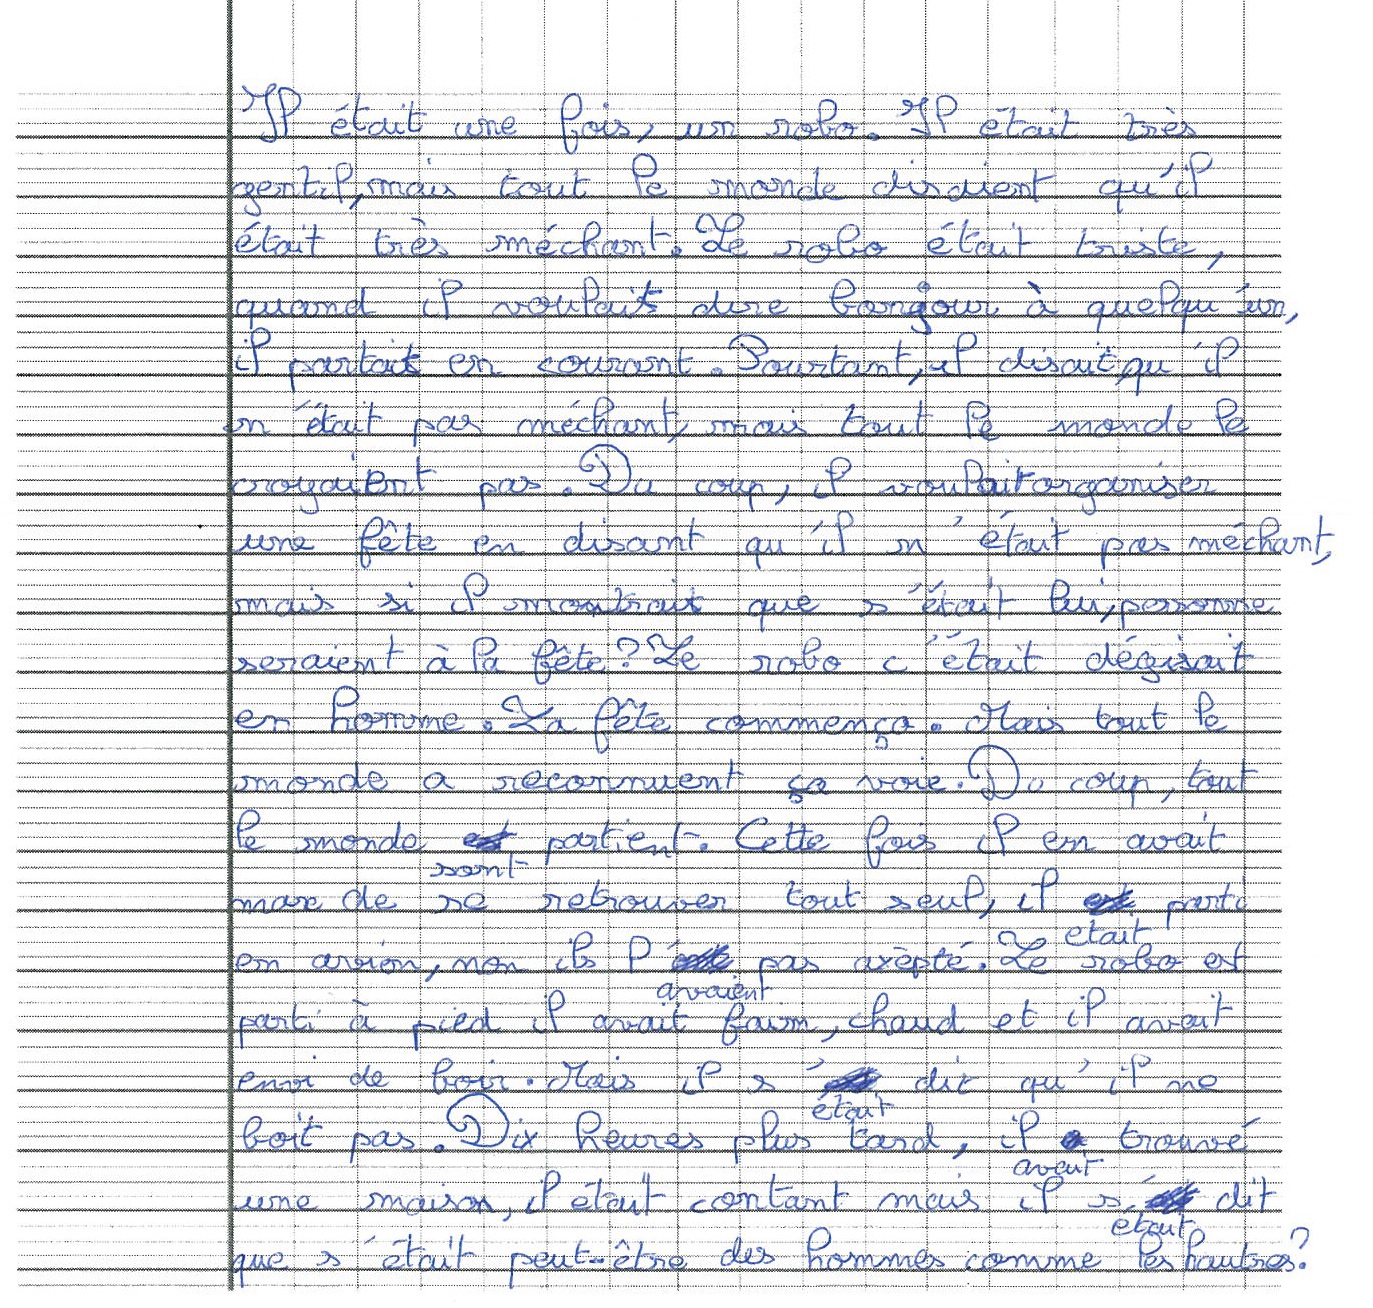 Il était une fois, un robo. Il était très
gentil, mais tout le monde disaient qu'il
était très méchant. Le robo était triste,
quand il voulait dire bonjour à quelqu'un,
il partait en courant. Pourtant, il disait, qu'il
n'était pas méchant, mais tout le monde le
croyaient pas. Du coup, il voulait organiser
une fête en disant qu'il n'était pas méchant,
mais si il montrait que s'était lui, personne
seraient à la fête ? Le robo c'était dégisait
en homme. La fête commença. Mais tout le
monde a reconnuent sa voie. Du coup, tout
le monde partient. Cette fois il en avait
sont
mare de se retrouver tout seul, il parti
était
en avion, non ils l' pas axèpté. Le robo est
avaient
parti à pied il avait faim, chaud et il avait
envi de boir. Mais il s' dit qu'il ne
était
boit pas. Dix heures plus tard, il trouvé
avait
une maison, il était contant mais il s' dit
était
que s'était peut-être des hommes comme les hautres ?